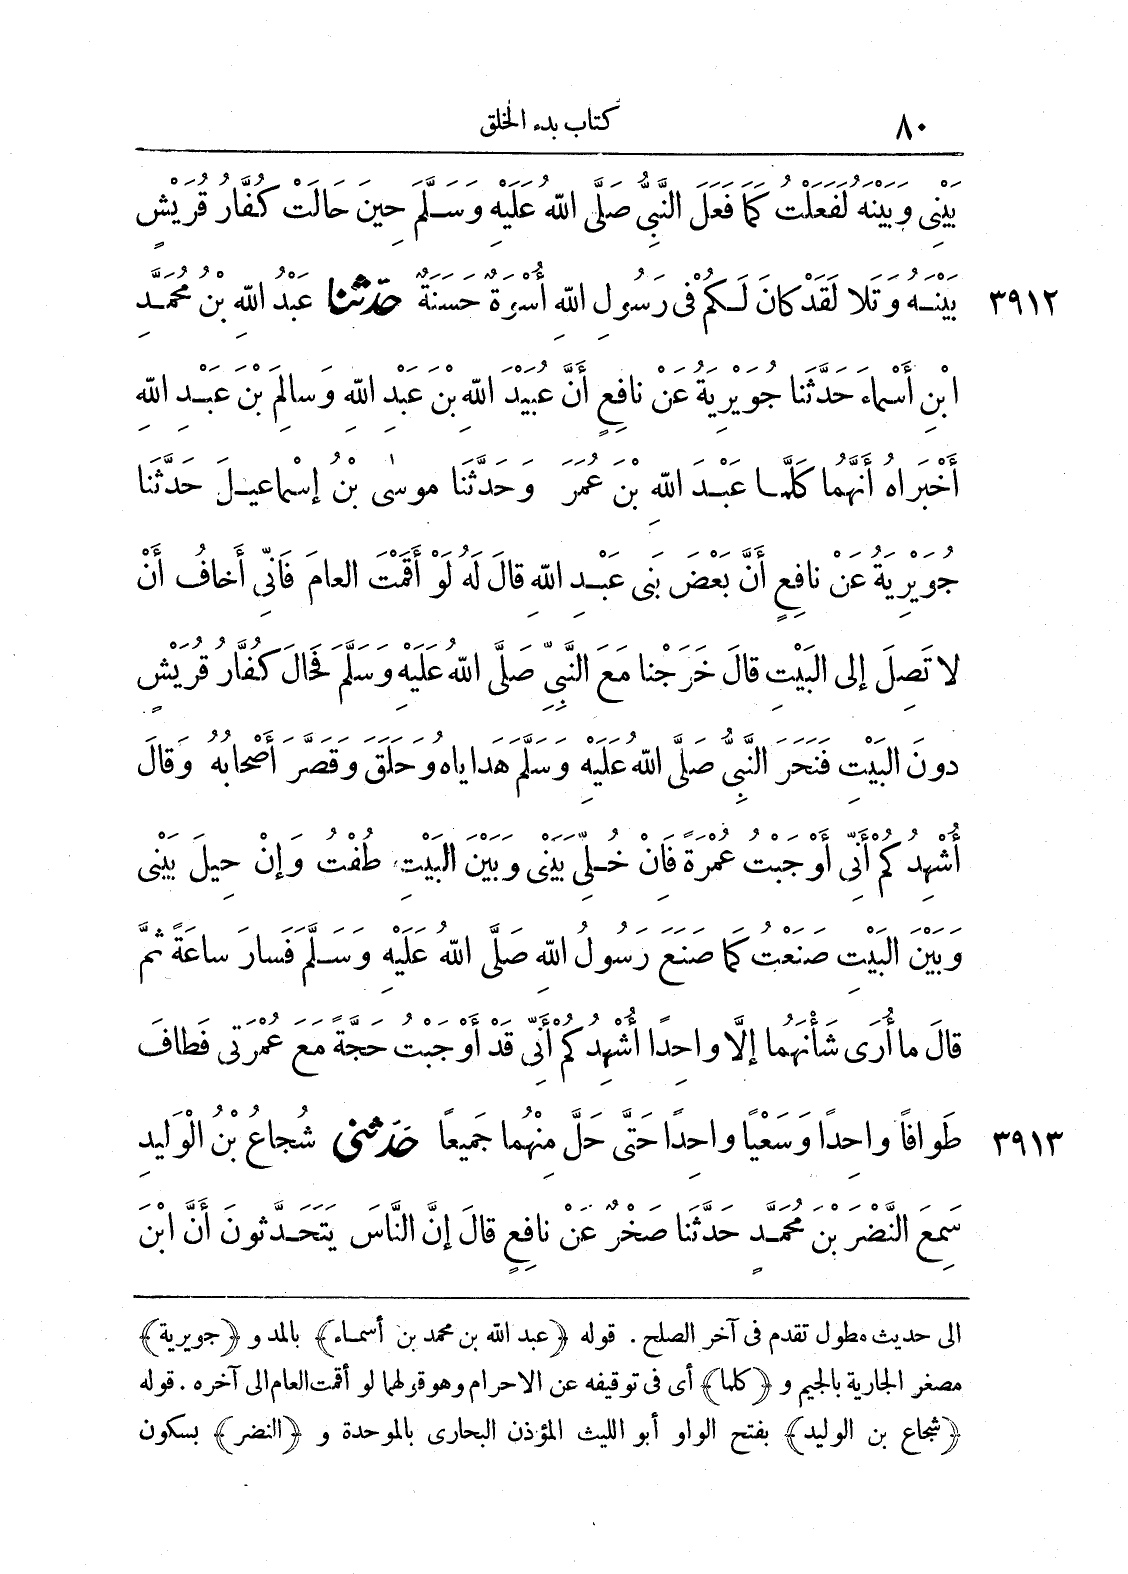 ٨٠ كتاب بدء الخلق
بَيْنِى وَبَيْنَهُ لَفَعَلْتُ كَمَا فَعَلَ النَّبِىُّ صَلَّى اللهُ عَلَيْهِ وَسَلَّمَ حِينَ حَالَتْ كُفَّارُ قُرَيْشٍ
٣٩١٢ بَيْنَهُ وَتَلا لَقَدْ كانَ لَكُمْ فى رَسُولِ اللهِ أُسْوَةٌ حَسَنَةٌ حَدّثنا عَبْدُ اللهِ بْنُ مُحَمَّدِ
ابْنِ أَسْماءَ حَدَّثَنا جُوَيْرِيَةُ عَنْ نافِعٍ أَنَّ عُبَيْدَ اللهِ بْنَ عَبْدِ اللهِ وَسالِمَ بْنَ عَبْدِ اللهِ
أَخْبَراهُ أَنَّهُما كَلَّما عَبْدَ اللهِ بْنَ عُمَرَ وَحَدَّثَنا موسٰى بْنُ إسْماعيلَ حَدَّثَنا
جُوَيْرِيَةُ عَنْ نافِعٍ أَنَّ بَعْضَ بَنى عَبْدِ اللهِ قالَ لَهُ لَوْ أَقَمْتَ العامَ فَانّى أَخافُ أَنْ
لا تَصِلَ إلى البَيْتِ قالَ خَرَجْنا مَعَ النَّبِىّ صَلَّى اللهُ عَلَيْهِ وَسَلَّمَ فَحالَ كُفَّارُ قُرَيْشٍ
دونَ البَيْتِ فَنَحَرَ النَّبِىُّ صَلَّى اللهُ عَلَيْهِ وَسَلَّمَ هَداياهُ وَحَلَقَ وَقَصَّرَ أَصْحابُهُ وَقالَ
أُشْهِدُكُمْ أَنّى أَوْجَبْتُ عُمْرَةً فَانْ خُلِّىَ بَيْنى وَبَيْنَ البَيْتِ طُفْتُ وَإنْ حِيلَ بَيْنى
وَبَيْنَ البَيْتِ صَنَعْتُ كَمَا صَنَعَ رَسُولُ اللهِ صَلَّى اللهُ عَلَيْهِ وَسَلَّمَ فَسارَ ساعَةً ثُمَّ
قالَ ما أُرَى شَأْنَهُما إلَّا واحِدًا أُشْهِدُكُمْ أَنّى قَدْ أَوْجَبْتُ حَجَّةً مَعَ عُمْرَتى فَطافَ
٣٩١٣ طَوافًا واحِدًا وَسَعْيًا واحِدًا حَتَّى حَلَّ مِنْهُما جَميعًا حَدّثنى شُجاعُ بْنُ الْوَليدِ
سَمِعَ النَّضْرَ بْنَ مُحَمَّدٍ حَدَّثَنا صَخْرٌ عَنْ نافِعٍ قالَ إنَّ النَّاسَ يَتَحَدَّثونَ أَنَّ ابْنَ
الى حديث مطول تقدم فى آخر الصلح . قوله ﴿عبد الله بن محمد بن أسماء﴾ بالمد و ﴿جويرية﴾
مصغر الجارية بالجيم و ﴿كلما﴾ أى فى توقيفه عن الاحرام وهو قولهما لو أقمت العام الى آخره . قوله
﴿شجاع بن الوليد﴾ بفتح الواو أبو الليث المؤذن البخارى بالموحدة و ﴿النضر﴾ بسكون